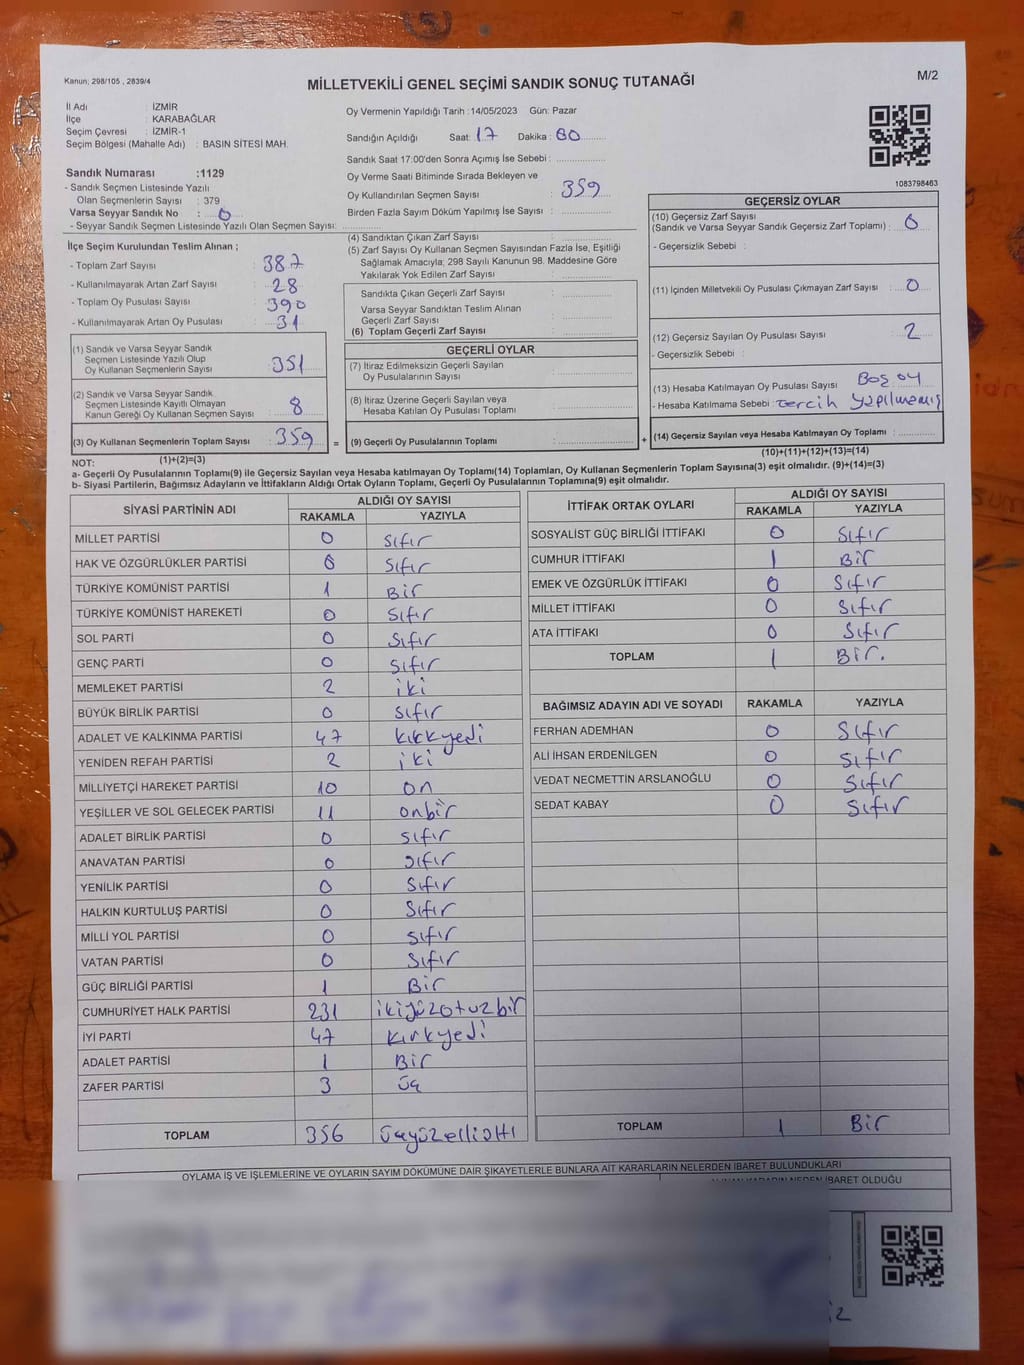 Kanun; 298/105 , 2839/4
MİLLETVEKİLİ GENEL SEÇİMİ SANDIK SONUÇ TUTANAĞI
M/2
İl Adı : İZMİR
İlçe : KARABAĞLAR
Seçim Çevresi : İZMİR-1
Seçim Bölgesi (Mahalle Adı) : BASIN SİTESİ MAH.
Sandık Numarası :1129
- Sandık Seçmen Listesinde Yazılı
Olan Seçmenlerin Sayısı : 379
Varsa Seyyar Sandık No : 0
- Seyyar Sandık Seçmen Listesinde Yazılı Olan Seçmen Sayısı:
Oy Vermenin Yapıldığı Tarih :14/05/2023 Gün: Pazar
Sandığın Açıldığı Saat: 17 Dakika :
Sandık Saat 17:00'den Sonra Açımış İse Sebebi :
Oy Verme Saati Bitiminde Sırada Bekleyen ve
Oy Kullandırılan Seçmen Sayısı : 359
Birden Fazla Sayım Döküm Yapılmış İse Sayısı :
1083798463
İlçe Seçim Kurulundan Teslim Alınan ;
- Toplam Zarf Sayısı : 387
- Kullanılmayarak Artan Zarf Sayısı : 28
- Toplam Oy Pusulası Sayısı : 390
- Kullanılmayarak Artan Oy Pusulası : 31
(1) Sandık ve Varsa Seyyar Sandık
Seçmen Listesinde Yazılı Olup
Oy Kullanan Seçmenlerin Sayısı : 351
(2) Sandık ve Varsa Seyyar Sandık
Seçmen Listesinde Kayıtlı Olmayan
Kanun Gereği Oy Kullanan Seçmen Sayısı : 8
(3) Oy Kullanan Seçmenlerin Toplam Sayısı : 359 =
(1)+(2)=(3)
(4) Sandıktan Çıkan Zarf Sayısı :
(5) Zarf Sayısı Oy Kullanan Seçmen Sayısından Fazla İse, Eşitliği
Sağlamak Amacıyla; 298 Sayılı Kanunun 98. Maddesine Göre
Yakılarak Yok Edilen Zarf Sayısı :
Sandıkta Çıkan Geçerli Zarf Sayısı :
Varsa Seyyar Sandıktan Teslim Alınan
Geçerli Zarf Sayısı :
(6) Toplam Geçerli Zarf Sayısı :
GEÇERLİ OYLAR
(7) İtiraz Edilmeksizin Geçerli Sayılan
Oy Pusulalarının Sayısı :
(8) İtiraz Üzerine Geçerli Sayılan veya
Hesaba Katılan Oy Pusulası Toplamı :
(9) Geçerli Oy Pusulalarının Toplamı : +
GEÇERSİZ OYLAR
(10) Geçersiz Zarf Sayısı
(Sandık ve Varsa Seyyar Sandık Geçersiz Zarf Toplamı) : 0
- Geçersizlik Sebebi :
(11) İçinden Milletvekili Oy Pusulası Çıkmayan Zarf Sayısı : 0
(12) Geçersiz Sayılan Oy Pusulası Sayısı : 2
- Geçersizlik Sebebi :
(13) Hesaba Katılmayan Oy Pusulası Sayısı : Boş oy
- Hesaba Katılmama Sebebi : tercih yapılmamış
(14) Geçersiz Sayılan veya Hesaba Katılmayan Oy Toplamı :
(10)+(11)+(12)+(13)=(14)
NOT:
a- Geçerli Oy Pusulalarının Toplamı(9) ile Geçersiz Sayılan veya Hesaba katılmayan Oy Toplamı(14) Toplamları, Oy Kullanan Seçmenlerin Toplam Sayısına(3) eşit olmalıdır. (9)+(14)=(3)
b- Siyasi Partilerin, Bağımsız Adayların ve İttifakların Aldığı Ortak Oyların Toplamı, Geçerli Oy Pusulalarının Toplamına(9) eşit olmalıdır.
SİYASİ PARTİNİN ADI ALDIĞI OY SAYISI
RAKAMLA YAZIYLA
MİLLET PARTİSİ 0 Sıfır
HAK VE ÖZGÜRLÜKLER PARTİSİ 0 Sıfır
TÜRKİYE KOMÜNİST PARTİSİ 1 Bir
TÜRKİYE KOMÜNİST HAREKETİ 0 Sıfır
SOL PARTİ 0 Sıfır
GENÇ PARTİ 0 Sıfır
MEMLEKET PARTİSİ 2 iki
BÜYÜK BİRLİK PARTİSİ 0 Sıfır
ADALET VE KALKINMA PARTİSİ 47 kırkyedi
YENİDEN REFAH PARTİSİ 2 iki
MİLLİYETÇİ HAREKET PARTİSİ 10 on
YEŞİLLER VE SOL GELECEK PARTİSİ 11 onbir
ADALET BİRLİK PARTİSİ 0 Sıfır
ANAVATAN PARTİSİ 0 Sıfır
YENİLİK PARTİSİ 0 Sıfır
HALKIN KURTULUŞ PARTİSİ 0 Sıfır
MİLLİ YOL PARTİSİ 0 Sıfır
VATAN PARTİSİ 0 Sıfır
GÜÇ BİRLİĞİ PARTİSİ 1 Bir
CUMHURİYET HALK PARTİSİ 231 ikiyüzotuzbir
İYİ PARTİ 47 kırkyedi
ADALET PARTİSİ 1 Bir
ZAFER PARTİSİ 3 üç
TOPLAM 356 üçyüzelliAltı
İTTİFAK ORTAK OYLARI ALDIĞI OY SAYISI
RAKAMLA YAZIYLA
SOSYALİST GÜÇ BİRLİĞİ İTTİFAKI 0 Sıfır
CUMHUR İTTİFAKI 1 Bir
EMEK VE ÖZGÜRLÜK İTTİFAKI 0 Sıfır
MİLLET İTTİFAKI 0 Sıfır
ATA İTTİFAKI 0 Sıfır
TOPLAM 1 Bir.
BAĞIMSIZ ADAYIN ADI VE SOYADI RAKAMLA YAZIYLA
FERHAN ADEMHAN 0 Sıfır
ALİ İHSAN ERDENİLGEN 0 Sıfır
VEDAT NECMETTİN ARSLANOĞLU 0 Sıfır
SEDAT KABAY 0 Sıfır
TOPLAM 1 Bir
OYLAMA İŞ VE İŞLEMLERİNE VE OYLARIN SAYIM DÖKÜMÜNE DAİR ŞİKAYETLERLE BUNLARA AİT KARARLARIN NELERDEN İBARET BULUNDUKLARI
İBARET OLDUĞU